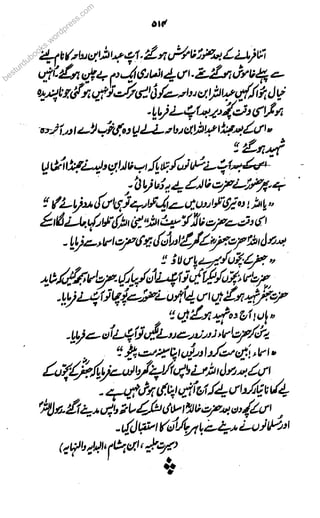 ۵۱۴
اتنا فرمانے کے بعد حضور خاموش ہو گئے۔ آپ عبداللہ ابن رواحہ کا نام لینے
سے پہلے خاموش ہو گئے تھے۔ اس لیے انصاری ایک دم بے چین ہو گئے۔ انہیں
خیال ہوا کہ کہیں عبداللہ ابن رواحہ سے کوئی ایسی حرکت تو نہیں ہو گئی جو ناپسندیدہ
ہو مگر اسی وقت کچھ دیر بعد آپ نے فرمایا۔
"اس کے بعد جھنڈا عبداللہ ابن رواحہ نے لے لیا وہ بھی خوب لڑے اور آخر وہ
شہید ہو گئے"
اس کے بعد آپ نے مسلمانوں کو بتلایا کہ اب خالد ابن ولید نے جھنڈا اٹھا لیا
ہے۔ پھر حضور نے حضرت خالد کے لیے یہ دعا فرمائی۔
"یا اللہ! وہ تیری تلواروں میں سے ایک تلوار ہے تو ہی اس کی مدد فرمائے گا"
اسی وقت سے حضرت خالد کو سیف اللہ "یعنی اللہ کی تلوار کہا جانے لگا اس کے
بعد رسول اللہ حضرت جعفر کے گھر گئے اور ان کی بیوی حضرت اسماء سے فرمایا۔
"جعفر کے بچوں کو میرے پاس لاؤ"
حضرت اسماء بچوں کو لے کر آئیں تو آپ نے ان کو پیار کیا۔ حضرت اسماء سمجھ گئیں کہ شاید
حضرت جعفر شہید ہو گئے ہیں اس لیے انہوں نے حضور سے پوچھا تو آپ نے فرمایا۔
"ہاں! آج وہ شہید ہو گئے ہیں"
یہ سن کر حضرت اسماء زور زور سے رونے لگیں تو آپ نے ان سے فرمایا۔
"اسماء، بین مت کرو اور یوں اپنا سینہ مت پیٹو"
اس کے بعد رسول اللہ نے واپس آ کر اپنے گھر والوں سے فرمایا کہ جعفر کے بچوں کے
لیے کھانا تیار کرو اس لیے کہ آج انہیں اپنا بھی ہوش نہیں ہے۔
اس کے کچھ دن بعد حضرت خالد اسلامی لشکر کے ساتھ واپس مدینے آ گئے۔ رسول اللہ
اور مسلمانوں نے مدینے سے باہر جا کر ان کا استقبال کیا۔
(سیرت حلبیہ، ابن ہشام، البدایہ والنہایہ)
besturdubooks.wordpress.com